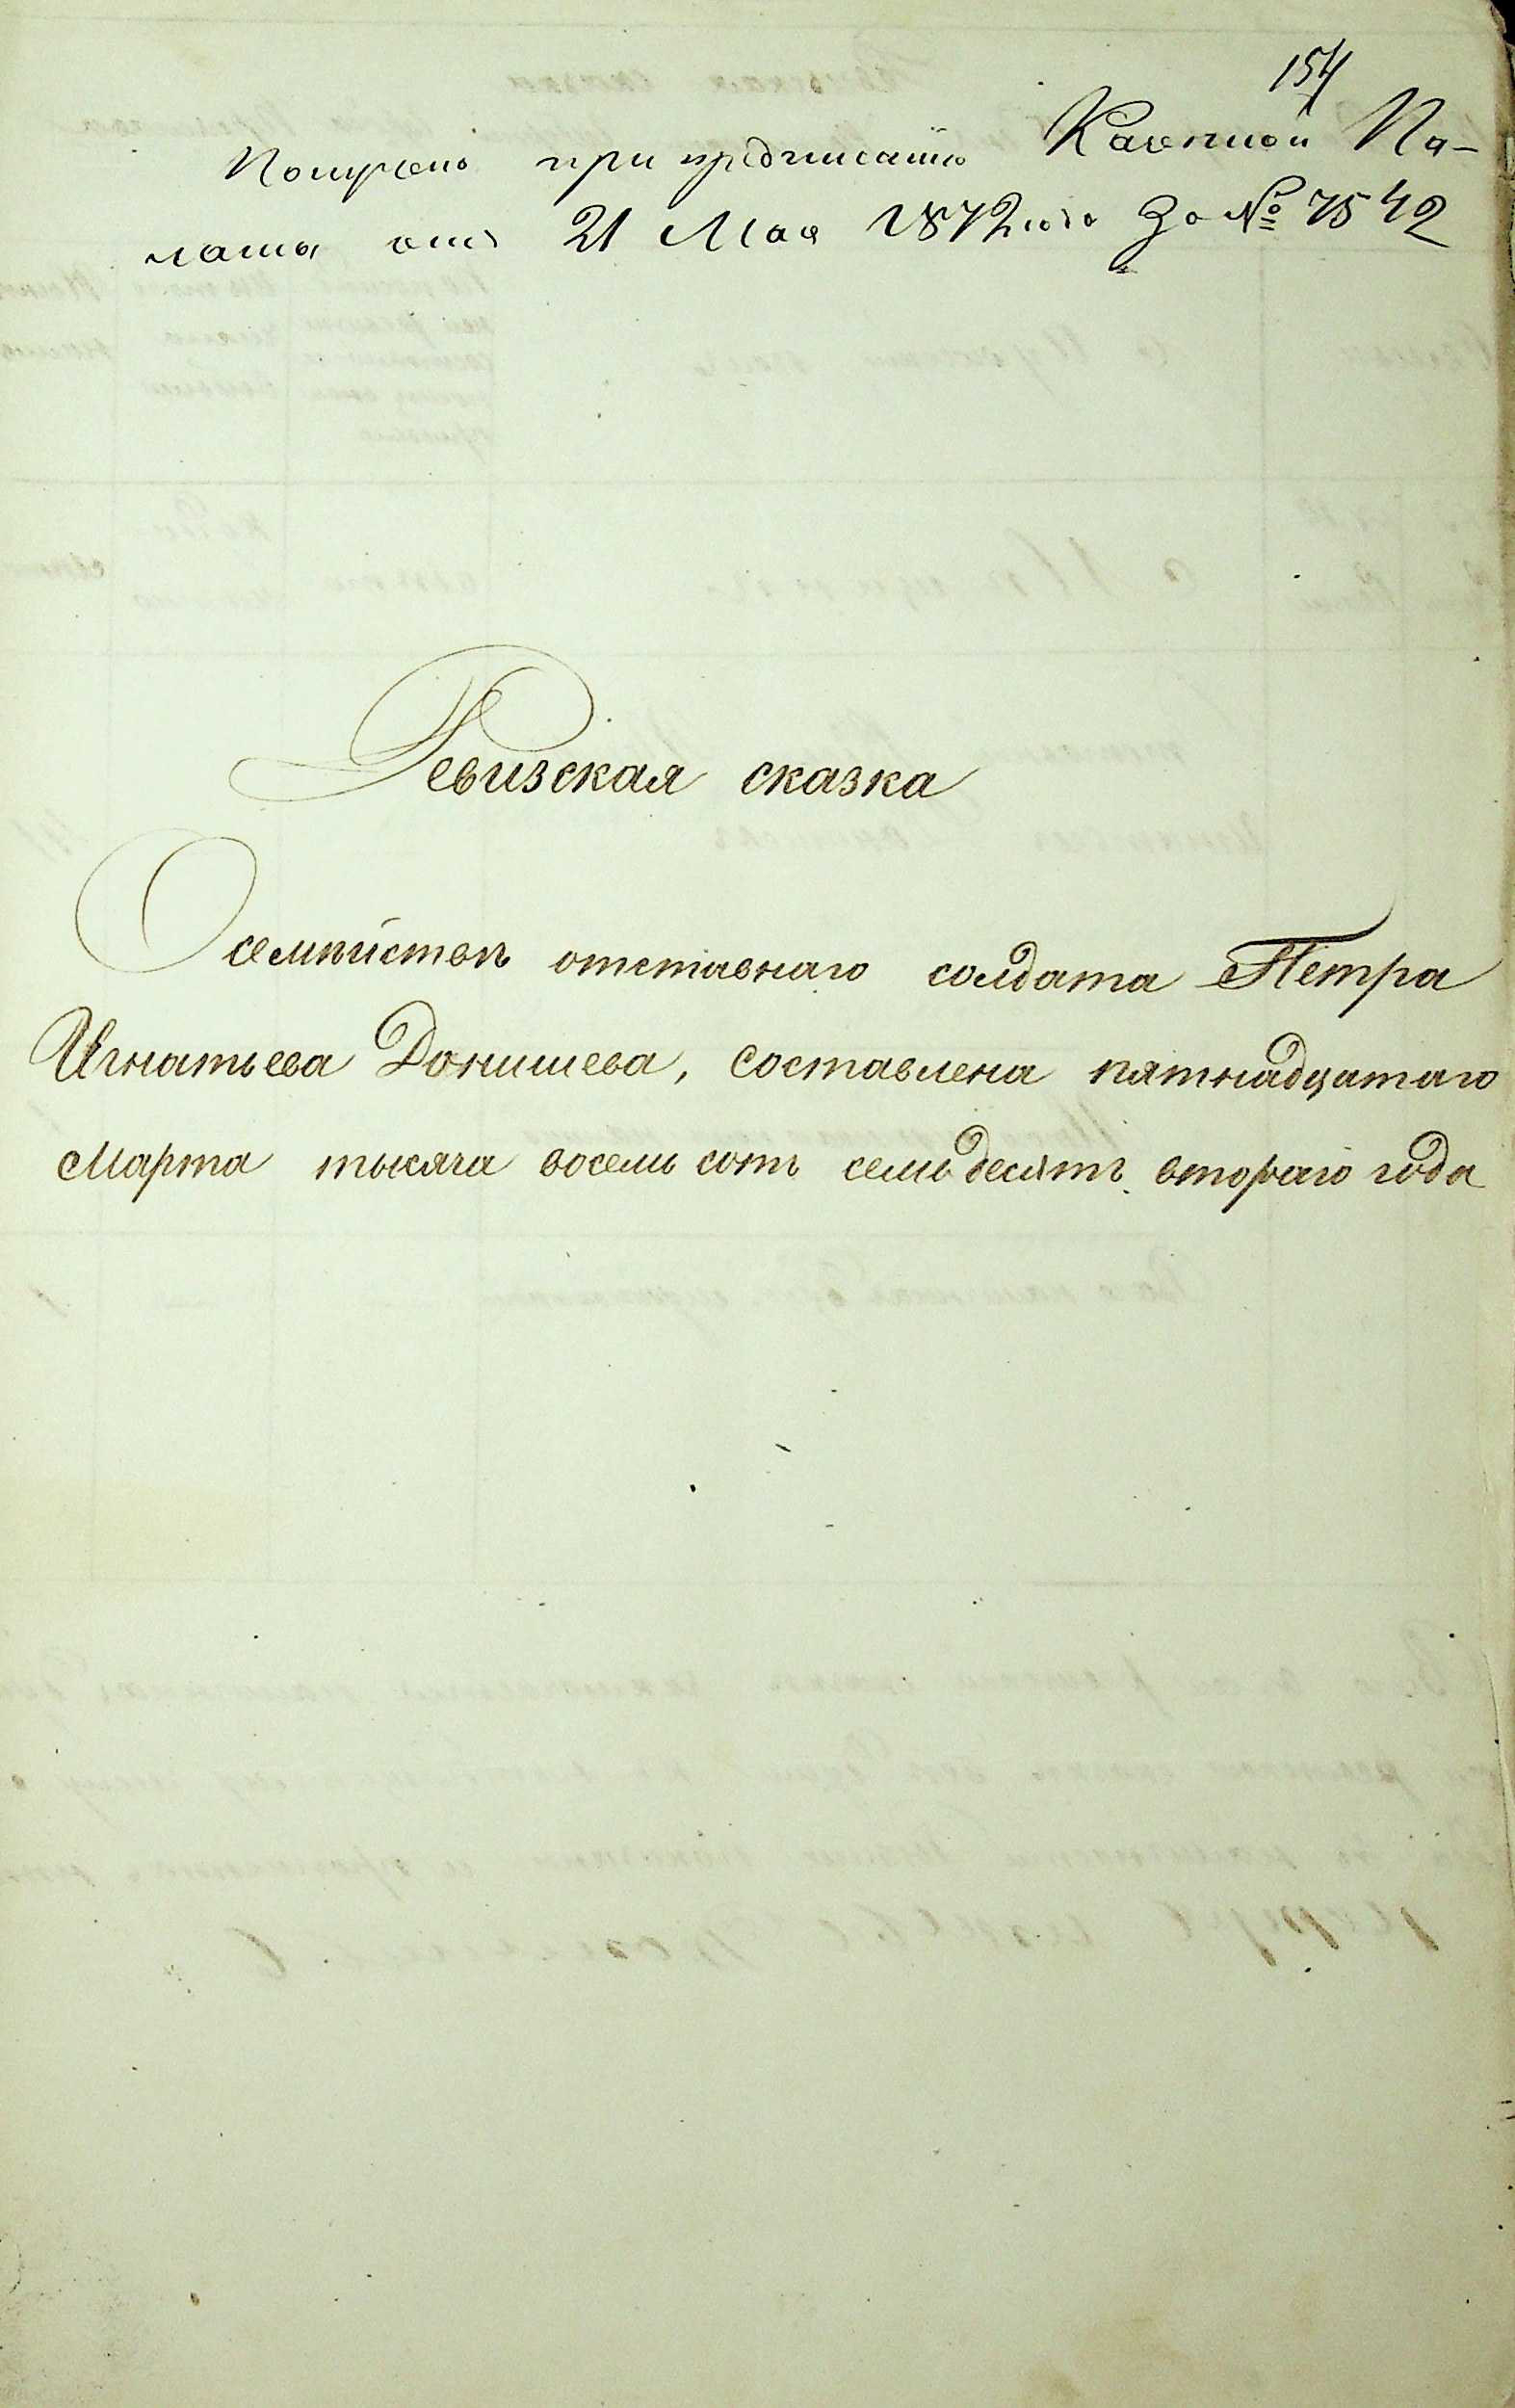 154
Получено при предписанiи Казенной Па-
латы отъ 21 Мая 1872 года За № 7542
Ревизская сказка
О семѣйствѣ отставнаго солдата Петра
Игнатьева Донишева, составлена пятнадцатаго
Марта тысяча восемь сотъ семьдесятъ втораго года